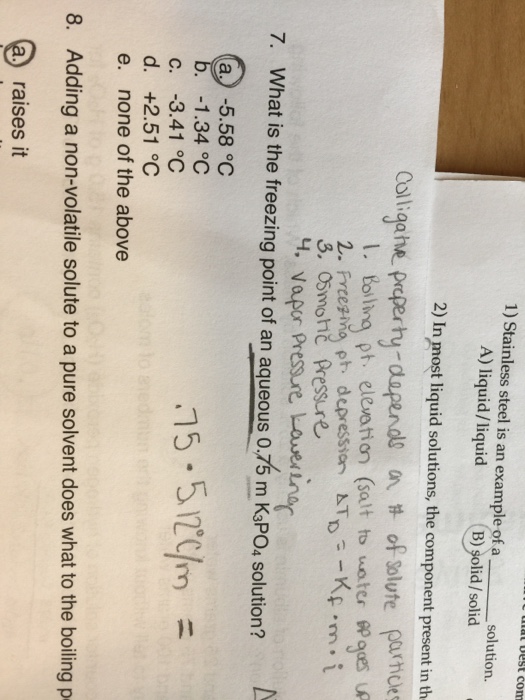 1) Stainless steel is an example of a ______ solution.
A) liquid/liquid B) solid/solid
2) In most liquid solutions, the component present in th
Colligative property-depends on # of solute particles
1. Boiling pt. elevation (salt to water BP goes up
2. Freezing pt. depression ΔTb = -Kf·m·i
3. Osmotic Pressure
4. Vapor Pressure Lowering
7. What is the freezing point of an aqueous 0.75 m K₃PO₄ solution?
a. -5.58 °C
b. -1.34 °C
c. -3.41 °C
d. +2.51 °C
e. none of the above
.75 · 512°C/m =
8. Adding a non-volatile solute to a pure solvent does what to the boiling p
a. raises it